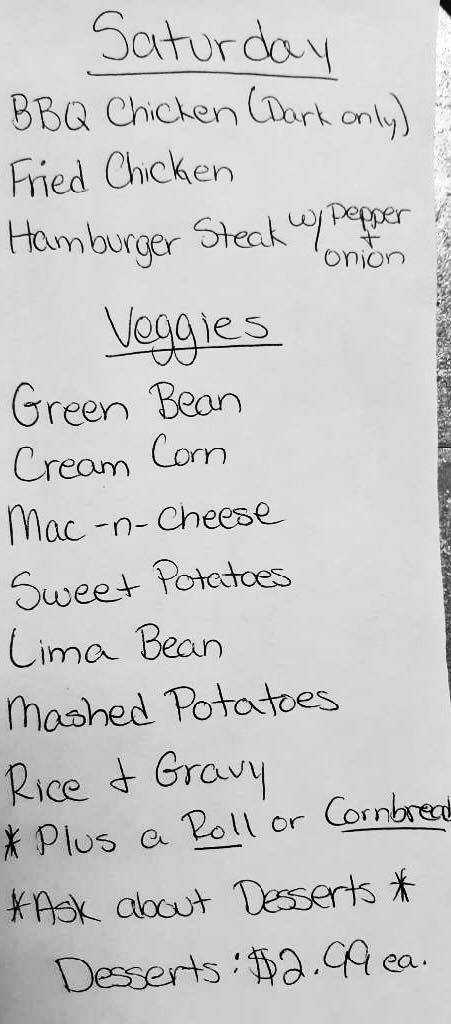 Saturday
BBQ Chicken (Dark only)
Fried Chicken
Hamburger Steak w/ Pepper
+
onion
Veggies
Green Bean
Cream Corn
Mac-n-Cheese
Sweet Potatoes
Lima Bean
Mashed Potatoes
Rice & Gravy
* Plus a Roll or Cornbread
*Ask about Desserts *
Desserts: $2.99 ea.